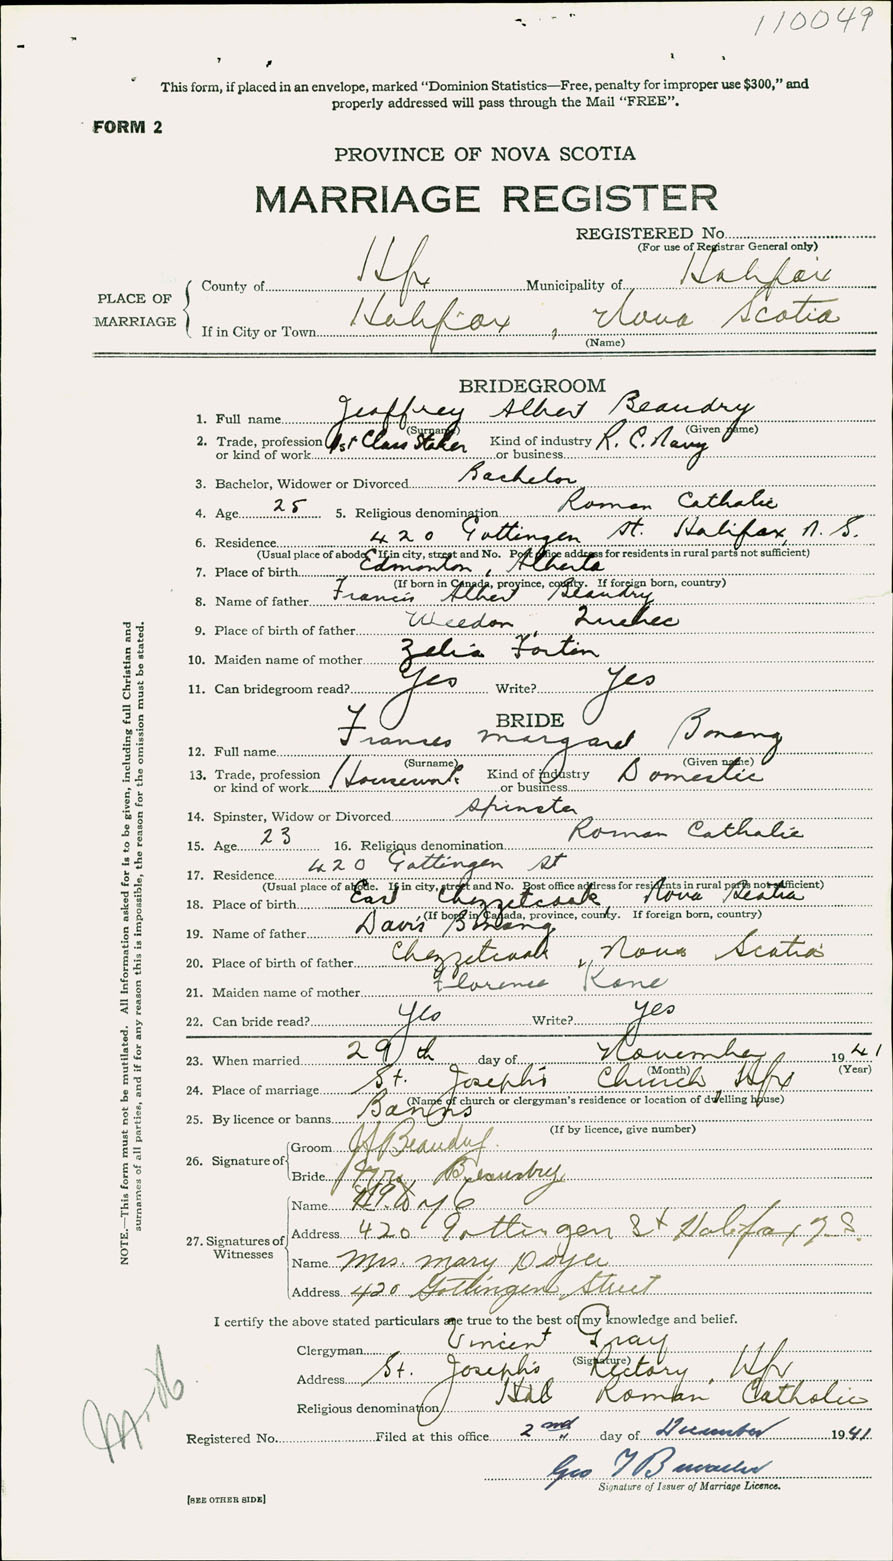 110049
This form, if placed in an envelope, marked “Dominion Statistics—Free, penalty for improper use $300,” and
properly addressed will pass through the Mail “FREE”.
FORM 2
PROVINCE OF NOVA SCOTIA
MARRIAGE REGISTER
REGISTERED No.
(For use of Registrar General only)
PLACE OF MARRIAGE
County of Hfx Municipality of Halifax
If in City or Town Halifax, Nova Scotia
(Name)
BRIDEGROOM
1. Full name Geoffrey Albert Beaudry
(Surname) (Given name)
2. Trade, profession or kind of work 1st Class Stoker Kind of industry or business R. C. Navy
3. Bachelor, Widower or Divorced Bachelor
4. Age 25 5. Religious denomination Roman Catholic
6. Residence 420 Gottingen St. Halifax, N. S.
(Usual place of abode. If in city, street and No. Post office address for residents in rural parts not sufficient)
7. Place of birth Edmonton, Alberta
(If born in Canada, province, county. If foreign born, country)
8. Name of father Francis Albert Beaudry
9. Place of birth of father Weedon, Quebec
10. Maiden name of mother Zelia Fortin
11. Can bridegroom read? Yes Write? Yes
BRIDE
12. Full name Frances Margaret Bonang
(Surname) (Given name)
13. Trade, profession or kind of work Housework Kind of industry or business Domestic
14. Spinster, Widow or Divorced Spinster
15. Age 23 16. Religious denomination Roman Catholic
17. Residence 420 Gottingen St
(Usual place of abode. If in city, street and No. Post office address for residents in rural parts not sufficient)
18. Place of birth East Chezzetcook, Nova Scotia
(If born in Canada, province, county. If foreign born, country)
19. Name of father Davis Bonang
20. Place of birth of father Chezzetcook, Nova Scotia
21. Maiden name of mother Florence Kane
22. Can bride read? Yes Write? Yes
23. When married 29th day of November 1941
(Month) (Year)
24. Place of marriage St. Joseph's Church, Hfx
(Name of church or clergyman's residence or location of dwelling house)
25. By licence or banns Banns
(If by licence, give number)
26. Signature of
Groom Beaudry
Bride Mrs. Beaudry
27. Signatures of Witnesses
Name
Address 420 Gottingen St Halifax N.S.
Name Mrs. Mary Doyle
Address 420 Gottingen Street
I certify the above stated particulars are true to the best of my knowledge and belief.
Clergyman Vincent Gray
(Signature)
Address St. Joseph's Rectory, Hfx
Religious denomination Roman Catholic
Registered No. Filed at this office 2nd day of December 1941
Geo
Signature of Issuer of Marriage Licence.
[SEE OTHER SIDE]
NOTE.—This form must not be mutilated. All Information asked for is to be given, including full Christian and
surnames of all parties, and if for any reason this is impossible, the reason for the omission must be stated.